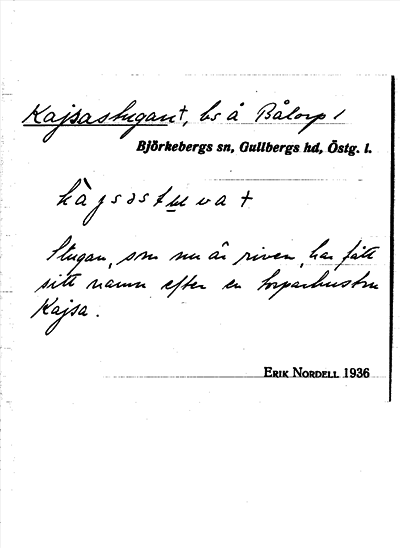 Kajsastugan†, bs å Bålorp 1
Björkebergs sn, Gullbergs hd, Östg. l.
kàjsastuvat
Stugan, som nu är riven, har fått
sitt namn efter en torparhustru
Kajsa.
ERIK NORDELL 1936